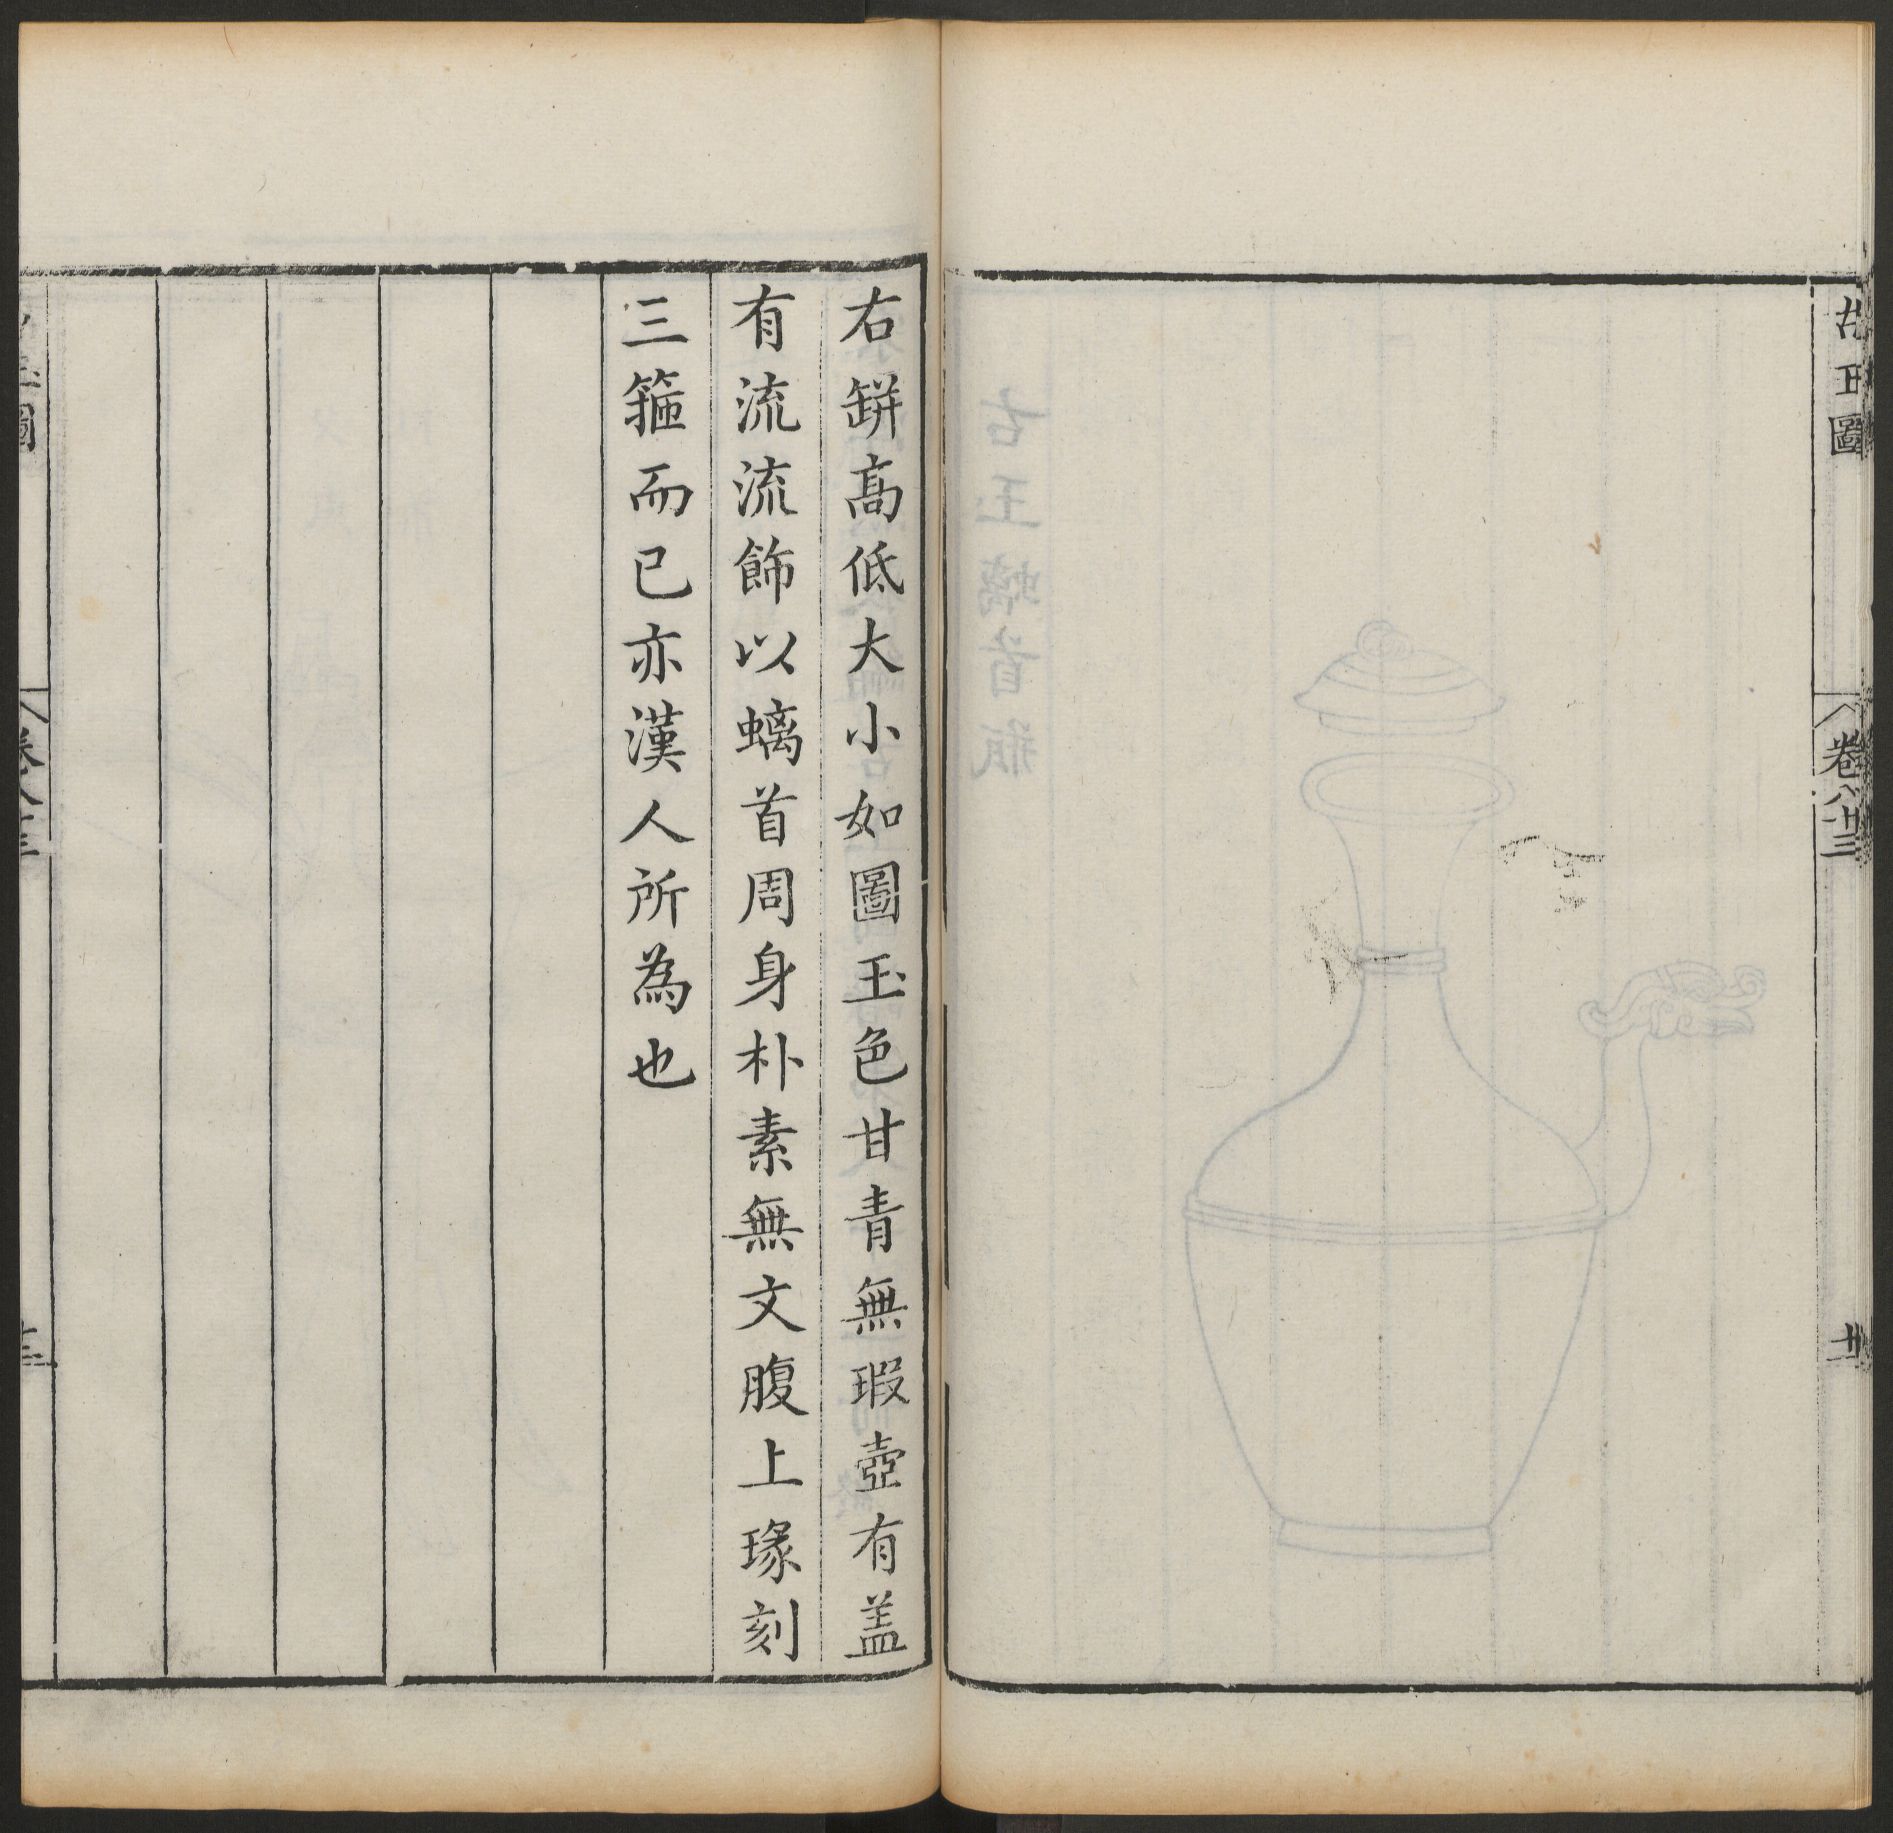 古玉圖
卷八十三
廿
古玉螭首瓶
右缾高低大小如圖玉色甘青無瑕壺有盖
有流流飾以螭首周身朴素無文腹上瑑刻
三箍而已亦漢人所為也